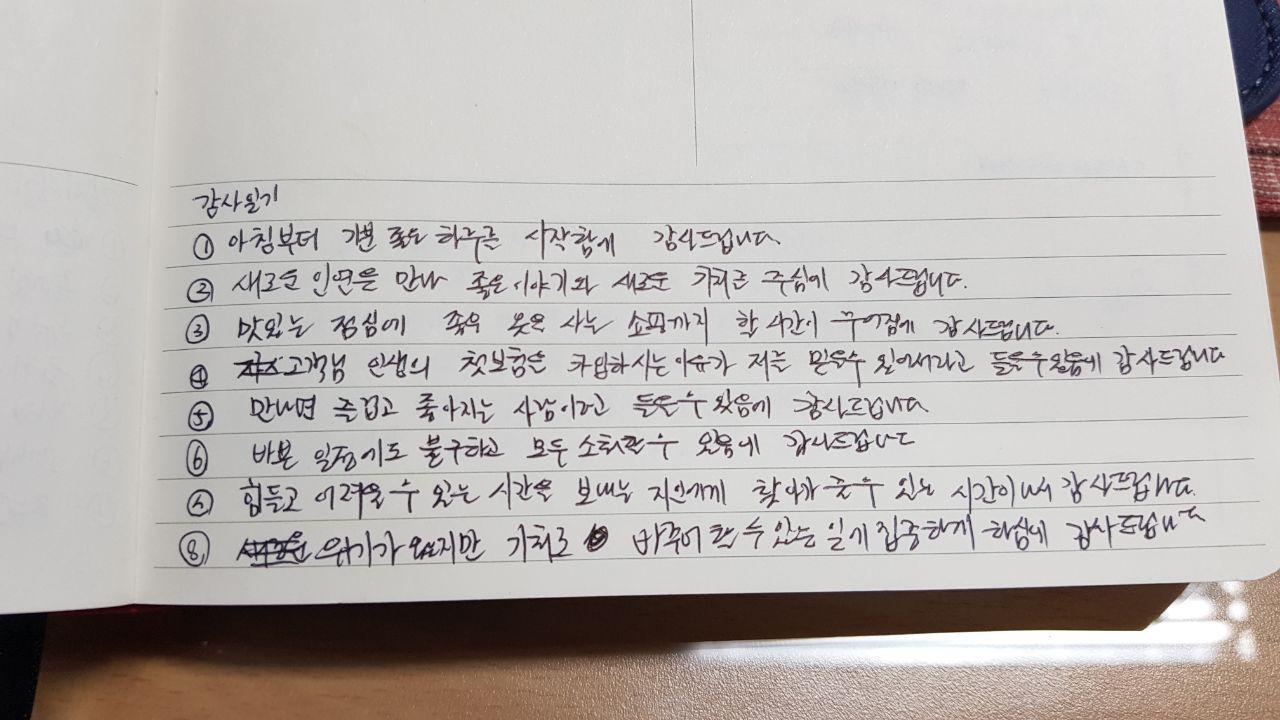 감사일기
① 아침부터 기분 좋은 하루를 시작함에 감사드립니다.
② 새로운 인연을 만나 좋은 이야기와 새로운 기회를 주심에 감사드립니다.
③ 맛있는 점심에 좋은 옷을 사는 쇼핑까지 할 시간이 주어짐에 감사드립니다.
④ 고객님 인생의 첫보험을 가입하시는 이유가 저를 믿을수 있어서라고 들을수 있음에 감사드립니다
⑤ 만나면 즐겁고 좋아지는 사람이라고 들을 수 있음에 감사드립니다
⑥ 바쁜 일정에도 불구하고 모두 소화할 수 있음에 감사드립니다
힘들고 어려울 수 있는 시간을 보내는 지인에게 찾아가 줄 수 있는 시간이 나서 감사드립니다.
⑧ 위기가 왔지만 기회로 바꾸어 할 수 있는 일에 집중하게 하심에 감사드립니다